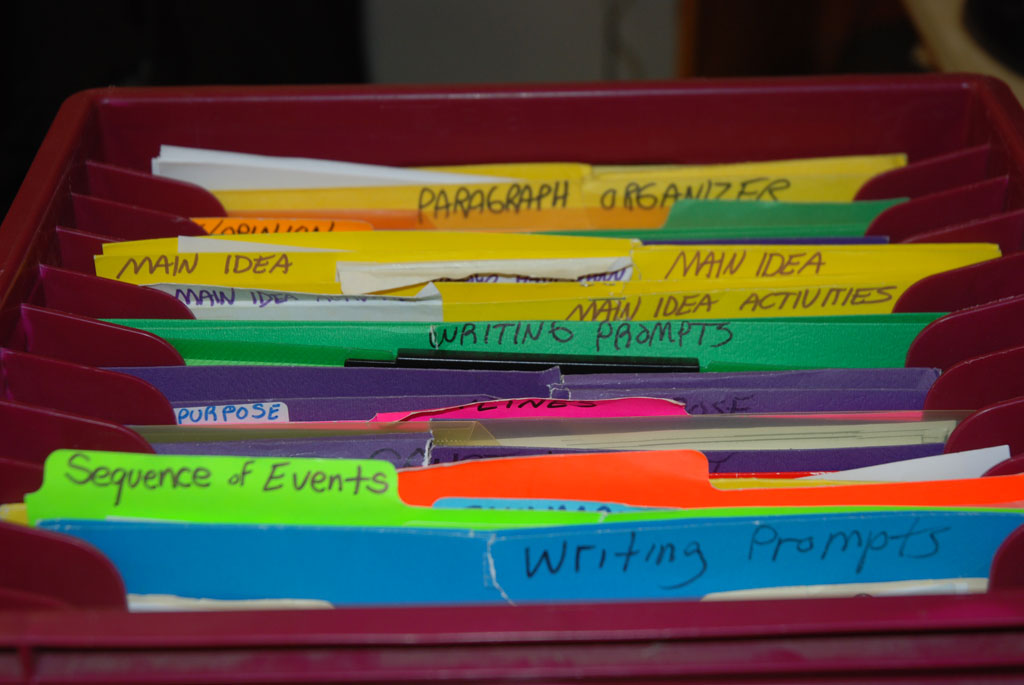 PARAGRAPH ORGANIZER
/OPINION
MAIN IDEA MAIN IDEA
MAIN IDEA MAIN IDEA ACTIVITIES
WRITING PROMPTS
PURPOSE
LINES
Sequence of Events
Writing Prompts